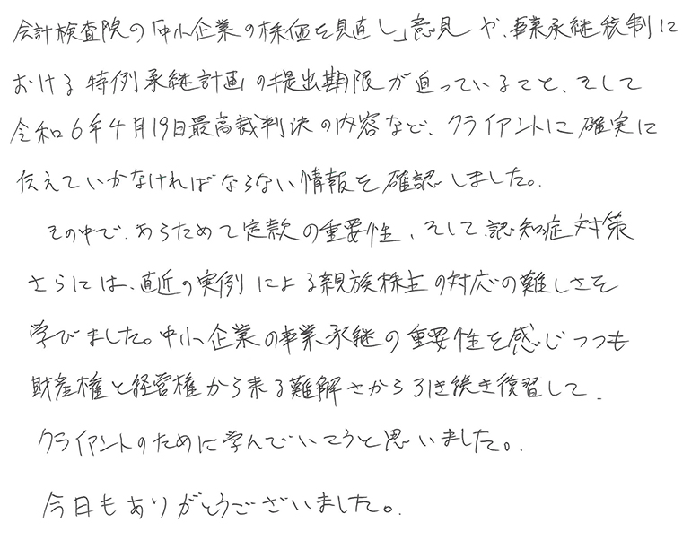 会計検査院の「中小企業の株価を見直し」意見や、事業承継税制に
おける特例承継計画の提出期限が迫っていること、そして
令和6年4月19日最高裁判決の内容など、クライアントに確実に
伝えていかなければならない情報を確認しました。
その中で、あらためて定款の重要性、そして認知症対策
さらには、直近の実例による親族株主の対応の難しさを
学びました。中小企業の事業承継の重要性を感じつつも
財産権と経営権から来る難解さから引き続き復習して、
クライアントのために学んでいこうと思いました。
今日もありがとうございました。